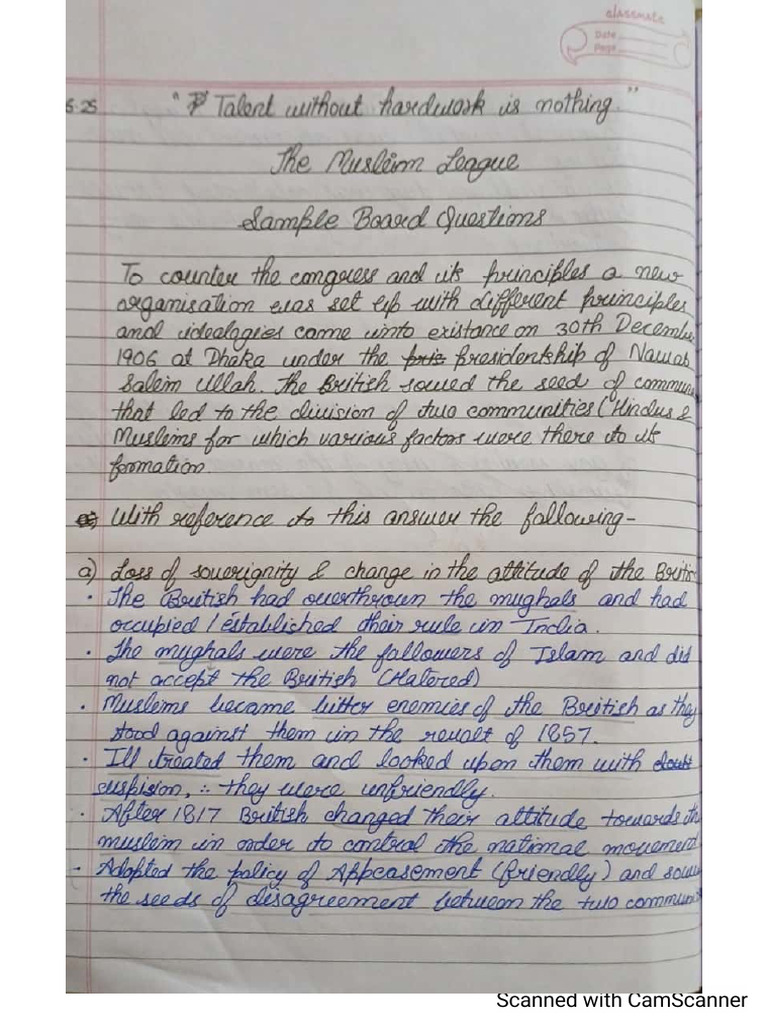 classmate
Date
Page
5.25 "Talent without hardwork is nothing."
The Musleim League
Sample Board Questions
To counter the congress and its principles a new
organisation was set up with different principles
and idealogies came into existance on 30th Decembe
1906 at Dhaka under the presidentship of Nawab
Salem Ullah. The British sowed the seed of commun
that led to the division of two communities (Hindus &
Muslems for which various factors were there to its
formation.
With reference to this answer the following-
a) Loss of souerignity & change in the attitude of the Britis
• The British had overthrown the mughals and had
occupied / established their rule in India.
• The mughals were the followers of Islam and did
not accept the British (Hatered)
• Muslems became bitter enemies of the British as they
stood against them in the revolt of 1857.
• Ill treated them and looked upon them with doubt
suspision, ∴ they were unfriendly.
• After 1817 British changed their attitude towards th
muslem in order to control the national movement
• Adopted the policy of Appeasement (friendly) and sow
the seeds of disagreement between the two communi
Scanned with CamScanner